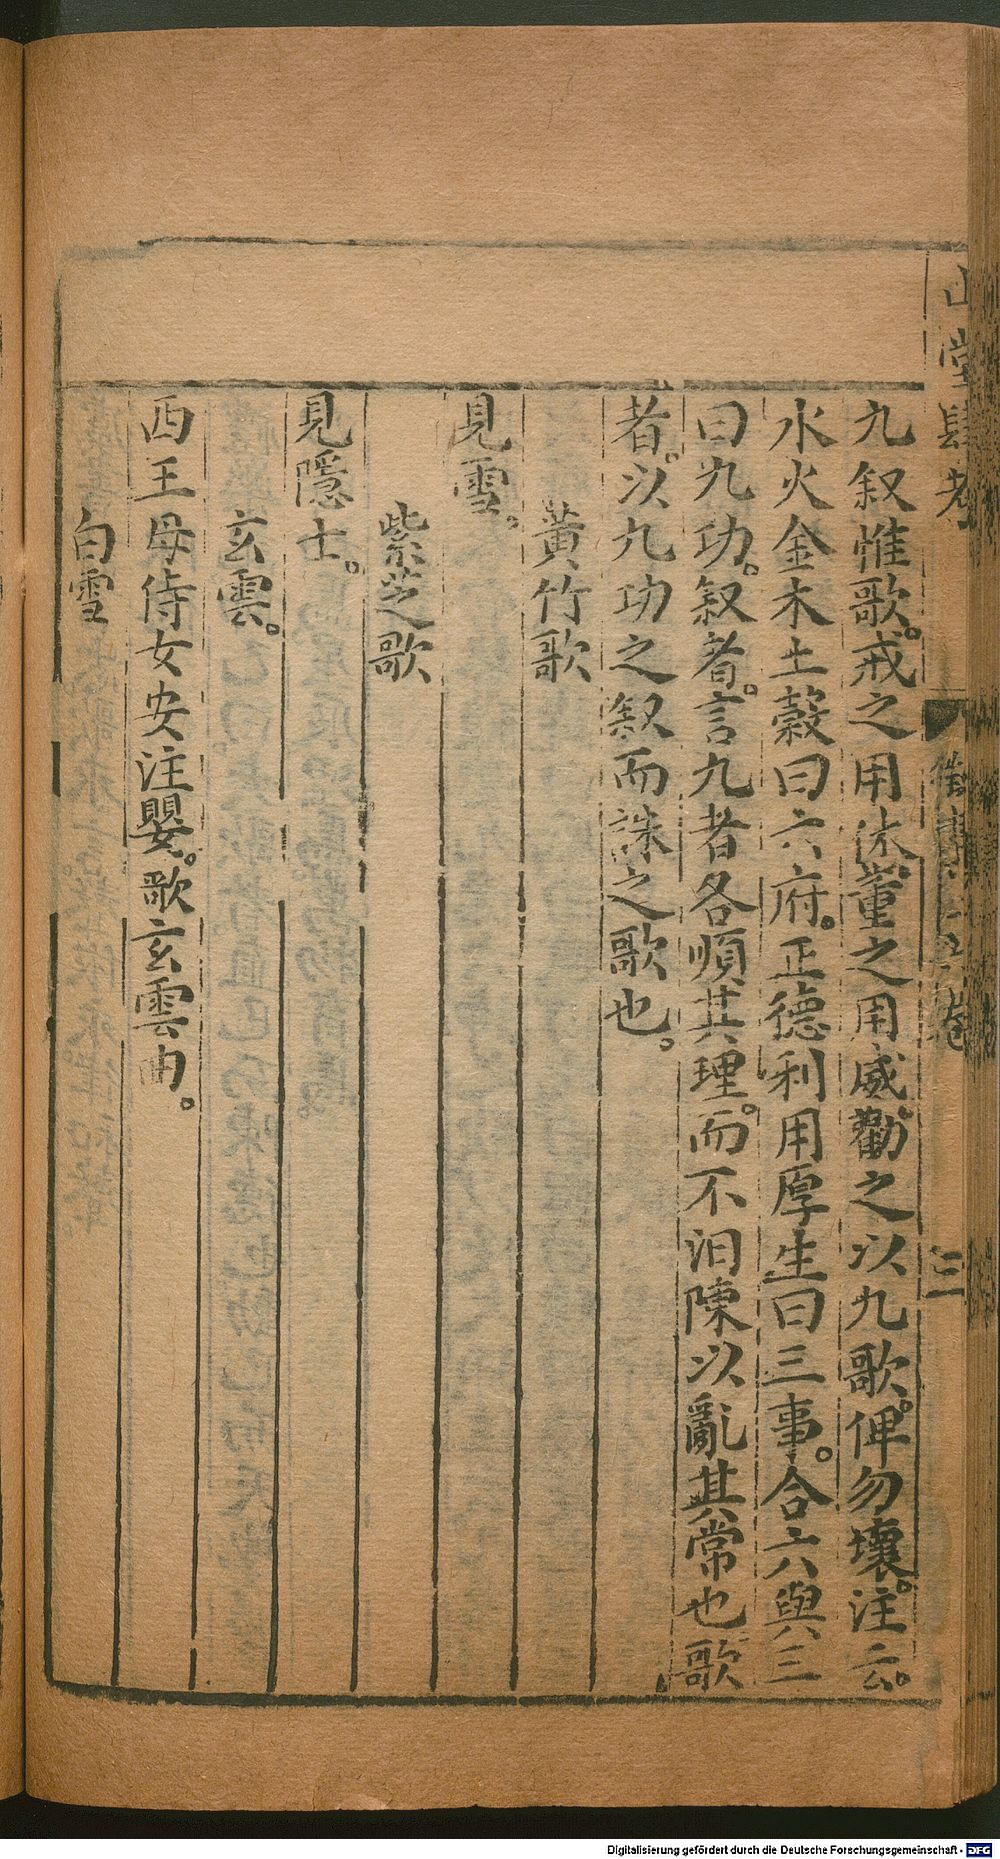 山堂肆考
九叙惟歌。戒之用休。董之用威。勸之以九歌。俾勿壞。注云。
水火金木土穀曰六府。正德利用厚生曰三事。合六與三
曰九功。叙者。言九者各順其理。而不汨陳以亂其常也歌
者。以九功之叙而詠之歌也。
黃竹歌
見雪。
紫芝歌
見隱士。
玄雲。
西王母侍女安注嬰。歌玄雲曲。
白雪
Digitalisierung gefördert durch die Deutsche Forschungsgemeinschaft - DFG